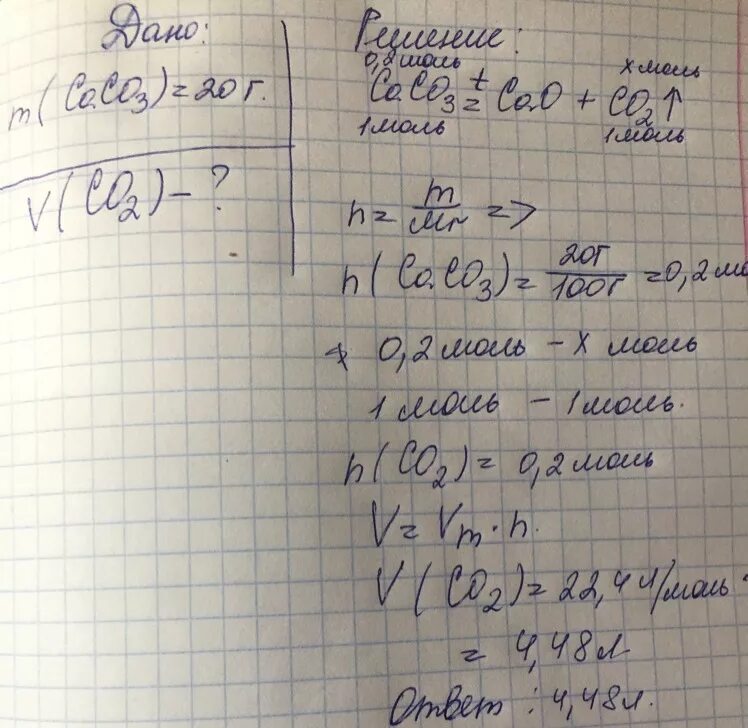 Дано:
m(CaCO3)=20г.
V(CO2)-?
Решение:
0,2моль x моль
CaCO3 t= CaO + CO2↑
1моль 1моль
n=m/Mr =>
n(CaCO3)=20г/100г=0,2мо
0,2моль - x моль
1 моль - 1моль.
n(CO2)= 0,2моль
V= Vm·n.
V(CO2)=22,4л/моль·
= 4,48л
Ответ: 4,48л.